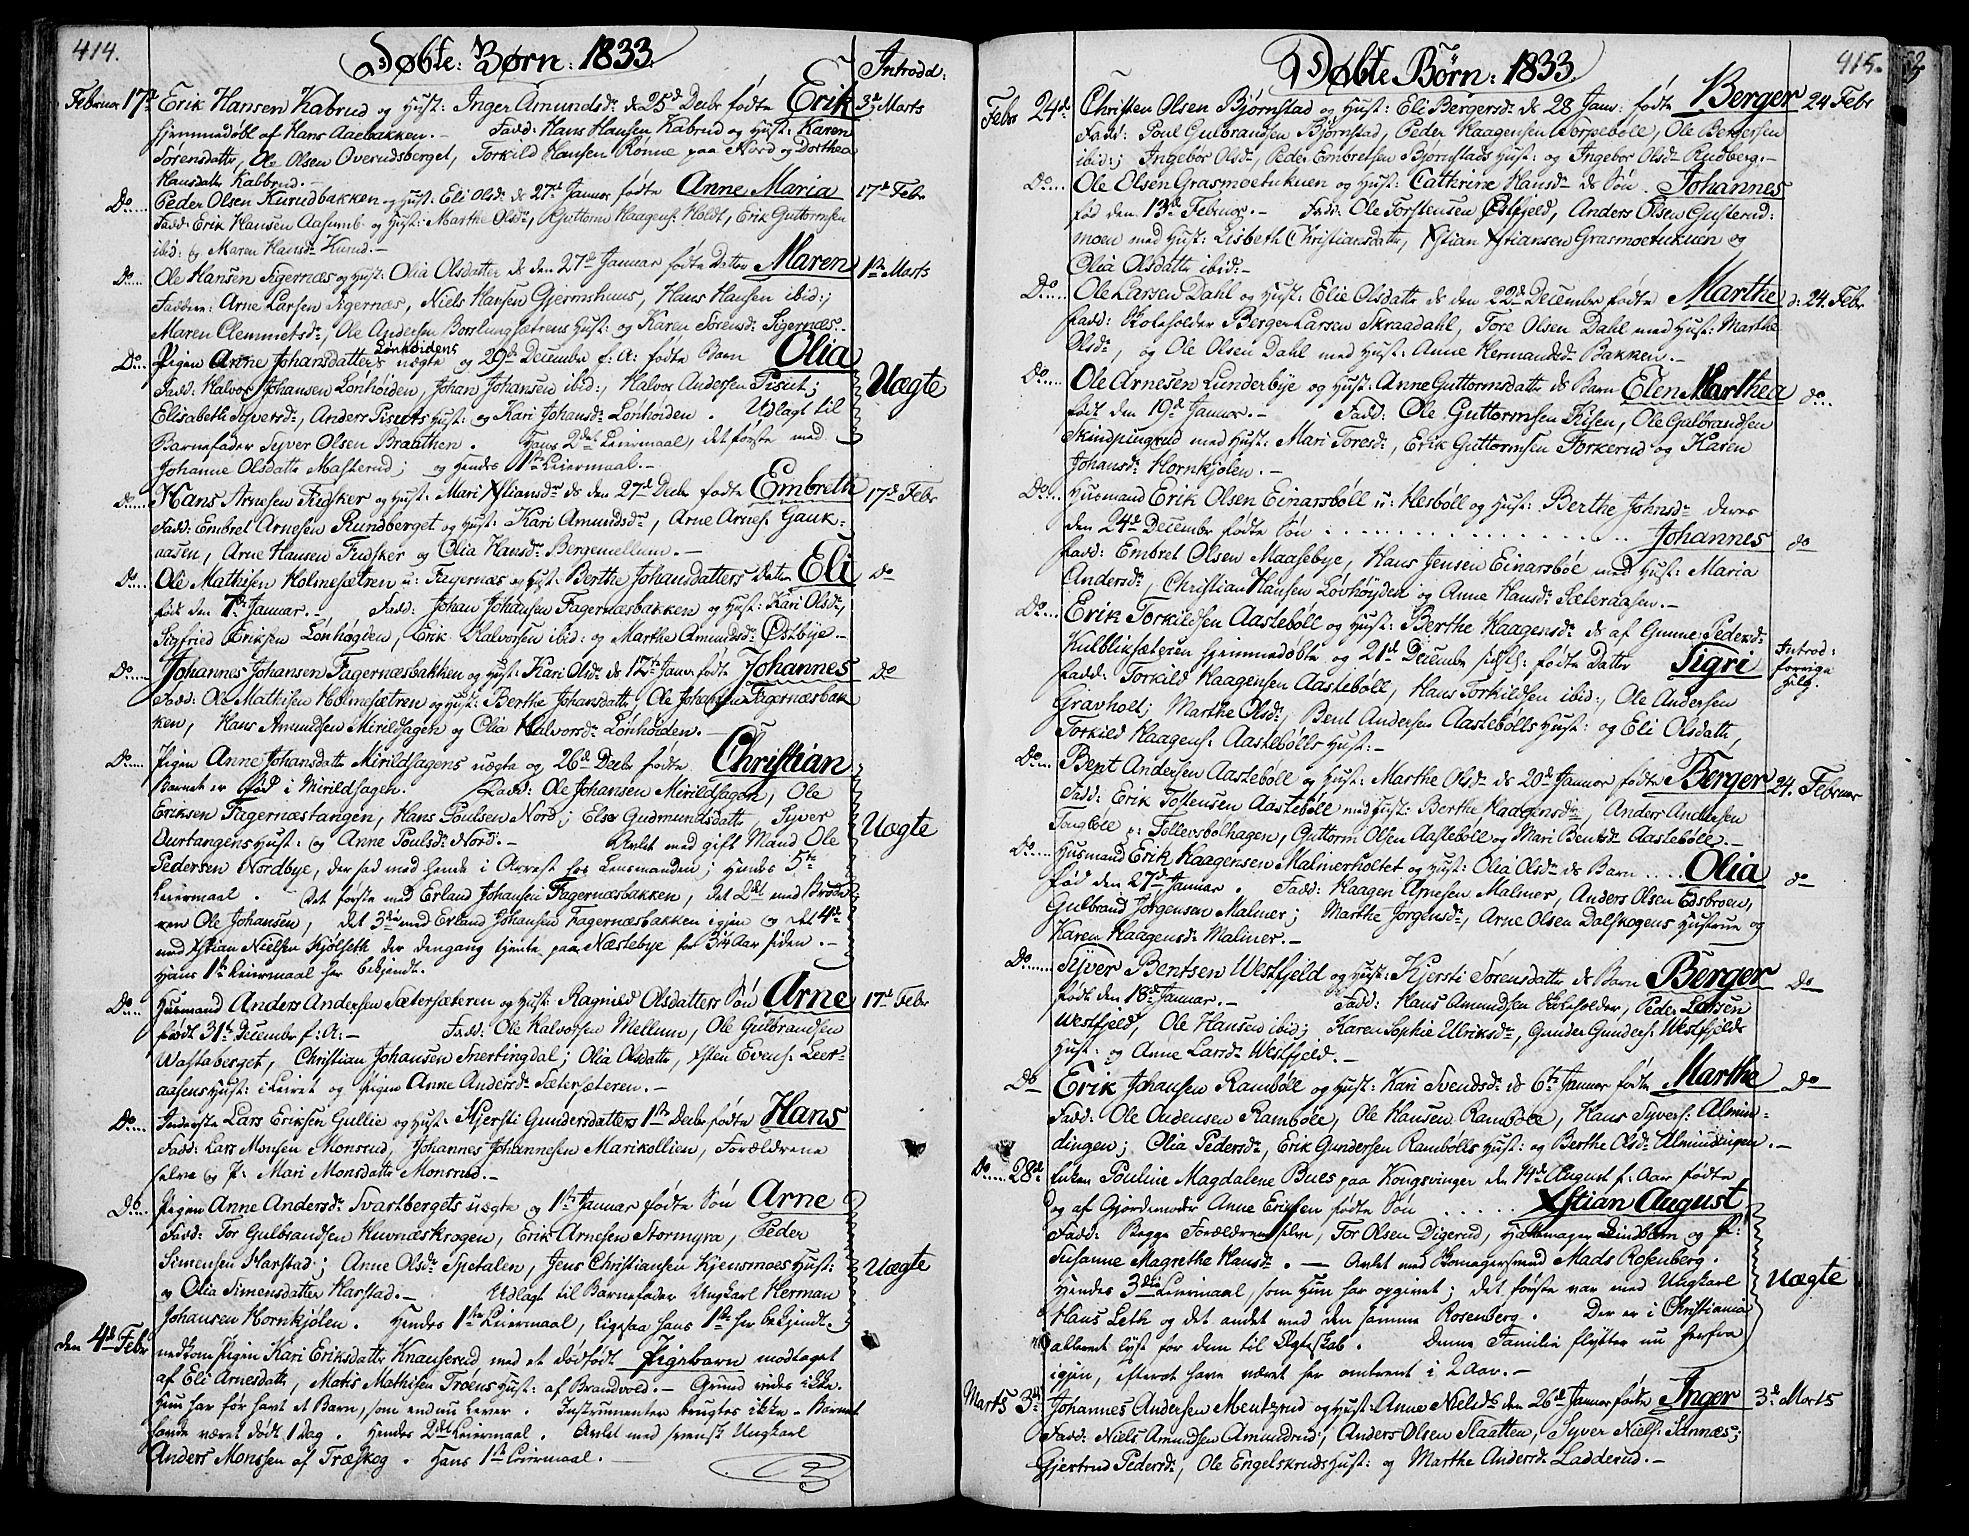 414.
Døbte Børn: 1833.
Introd:
Februar 17de Erik Hansen Kabrud og Hust: Inger Amundsdr de 25d Decbr fødte Erik 3d Marts
hjemmedøbt af Hans Aaebakken. - Fadd: Hans Hansen Kabrud og Hust: Karen
Sørensdatter, Ole Olsen Overudsberget, Torkild Hansen Rønne paa Nord og Dorthea
Hansdatter Kabbrud. -
Do..... Peder Olsen Kurudbakken og Hust: Eli Olsdr de 27d Januar fødte Anne Maria 17d Febr
Fadd: Erik Hansen Aasumb. og Hust: Marthe Olsdr, Guttorm Haagens: Holdt, Erik Guttormsen
ibid: og Maren Hansdr Hund. -
Do.... Ole Hansen Sigernæs og Hust: Olia Olsdatter de den 27d Januar fødte Datter Maren 1ste Marts
Faddere: Arne Larsen Sigernæs, Niels Hansen Gjermshuus, Hans Hansen ibid:;
Maren Clemmetsdr, Ole Andersen Borslungsætrens Hust: og Karen Sørensdr Sigernæs.
Do.... Pigen Anne Johansdatters Lønhøidens uægte og 29d Decembr f: A: fødte Barn Olia
Fadd: Halvor Johansen Lønhøiden, Johan Johansen ibid:, Halvor Andersen Pisut; Uægte
Elisabeth Syversdr, Anders Pisuts Hust: og Kari Johansdr Lønhøiden. Udlagt til
Barnefader Syver Olsen Braathen. Hans 2det Leiermaal, det første med
Johanne Olsdatter Masterud; og Hendes 1ste Leiermaal. -
Do..... Hans Arnesen Fudsker og Hust: Mari Xstiansdr de den 27d Decbr fødte Embreth 17d Febr
Fadd: Embret Arnesen Rundberget og Hust: Kari Amundsdr, Arne Arnes: Gauk-
aasen, Arne Hansen Fudsker og Olia Hansdr Bergemellum. -
Do.... Ole Mathisen Holmesætren u: Fagernæs og Hust: Berthe Johansdatters Datter Eli Do
født den 7de Januar. - Fadd: Johan Johansen Fagernæsbakken og Hust: Kari Olsdr,
Sigfried Eriksen Lønhøgden, Erik Halvorsen ibid: og Marthe Amundsdr Østbye. -
Do..... Johannes Johansen Fagernæsbakken og Hust: Kari Olsdr de 12te Janr fødte Johannes Do
Fadd: Ole Mathisen Holmesætren og Hust: Berthe Johansdatter, Ole Johansen Fagernæsbak
ken, Hans Amundsen Mirildhagen og Olia Halvorsdr Lønhøiden. -
Do.... Pigen Anne Johansdatter Mirildhagens uægte og 26d Decbr fødte Christian
Barnet er fød i Mirildhagen. Fadd: Ole Johansen Mirildhagen, Ole
Eriksen Fagernæstangen, Hans Poulsen Nord; Else Gudmundsdatter, Syver Uægte
Aurtangens Hust: og Anne Poulsdr Nord. - Avlet med gift Mand Ole
Pedersen Nordbye, der sad med hende i Arrest hos Lensmanden; Hendes 5te
Leiermaal. Det første med Erland Johansen Fagernæsbakken, Det 2det med Brode-
ren Ole Johansen, det 3die med Erland Johansen Fagernæsbakken igjen og det 4de
med Xstian Nielsen Kjølseth der dengang tjente paa Næstebye for 3/4 Aar siden. -
Hans 1ste Leiermaal her bekjendt.
Do... Husmand Anders Andersen Sætersæteren og Hust: Ragnild Olsdatters Søn Arne 17d Febr
født 31te Decembr f: A: - Fadd: Ole Halvorsen Mellum, Ole Gulbrandsen
Wastaberget, Christian Johansen Snertingdal; Olia Olsdatter, Østen Evens: Leer-
aasens Hust: i Leiret og Pigen Anne Andersdr Sætersæteren. -
Do.... Inderste Lars Eriksen Gullie og Hust: Kjersti Gundersdatters 1ste Decbr fødte Hans
Fadd: Lars Monsen Monsrud, Johannes Johannesen Marikollien, Forældrene
selve og P: Mari Monsdatter Monsrud. -
Do.... Pigen Anne Andersdr Svartbergets uægte og 1ste Januar fødte Søn Arne
Fadd: Tor Gulbrandsen Kuvnæskrogen, Erik Arnesen Stormyra, Peder
Simensen Harstad; Anne Olsdr Spetalen, Jens Christiansen Kjensmoes Hust: Uægte
og Olia Simensdatter Harstad. - Udlagt til Barnefader Ungkarl Herman
Johansen Hornkjølen. Hendes 1ste Leiermaal, ligesaa hans 1ste her bekjendt.
den 4d Febr nedkom Pigen Kari Eriksdatter Knauserud med et dødfødt Pigebarn modtaget
af Eli Arnesdatter, Matis Mathisen Trøens Hust: af Brandvold. - Grund vides ikke.
Hun har før havt et Barn, som endnu lever. Instrumenter brugtes ikke - Barnet
havde været dødt 1 Dag. Hendes 2det Leiermaal. Avlet med svensk Ungkarl
Anders Monssen af Træskog. Hans 1ste Leiermaal. -
Døbte Børn: 1833.
415.
Febr 24de Christen Olsen Bjørnstad og Hust: Eli Bergersdr de 28 Janr: fødte Berger 24 Febr
Fadd: Poul Gulbrandsen Bjørnstad, Peder Haagensen Torpebøll, Ole Bergersen
ibid:; Ingebor Olsdr, Peder Embretsen Bjørnstads Hust: og Ingebor Olsdr Rudberg. -
Do.... Ole Olsen Grasmoetukuen og Hust: Cathrine Hansdr de Søn Johannes
fød den 13d Februar. - Fadd: Ole Torstensen Østfjeld, Anders Olsen Gusterud:
moen med Hust: Lisbeth Christiansdatter, Xstian Xstiansen Grasmoetukuen og
Olia Olsdatter ibid: -
Do.... Ole Larsen Dahl og Hust: Elie Olsdatter de den 22d December fødte Marthe d: 24. Febr
Fadd: Skoleholder Berger Larsen Skraadahl, Tore Olsen Dahl med Hust: Marthe
Olsdr, og Ole Olsen Dahl med Hust: Anne Hermansdr Bakken. -
Do.... Ole Arnesen Lunderbye og Hust: Anne Guttormsdatter de Barn Elen Marthea do..
født den 19d Januar. - Fadd: Ole Guttormsen Risen, Ole Gulbrandsen
Skindpungrud med Hust: Mari Toresdr, Erik Guttormsen Torkerud og Karen
Johansdr Hornkjølen. -
Do... Husmand Erik Olsen Einarsbøll u: Hesbøll og Hust: Berthe Johnsdr deres
den 24d December fødte Søn . . . . . Johannes do
Fadd: Embret Olsen Maasebye, Hans Jensen Einarsbøe med Hust: Maria
Andersdr, Christian Hansen Løvhøyden og Anne Hansdr Sæteraasen. -
Do.... Erik Torkildsen Aastebøll og Hust: Berthe Haagensdr de af Gunne Pedersdr
Kulbliksæteren hjemmedøbte og 21d Decembr sidstl: fødte Datter Sigri Introd: forrige Helg.
Fadd: Torkild Haagensen Aastebøll, Hans Torkildsen ibid:, Ole Andersen
Gravholt; Marthe Olsdr, Bent Andersen Aastebølls Hust: og Eli Olsdatter,
Torkild Haagens: Aastebølls Hust: -
Do... Bent Andersen Aastebøll og Hust: Marthe Olsdr de 20d Januar fødte Berger 24. Februar
Fadd: Erik Tostensen Aastebøll med Hust: Berthe Haagensdr, Anders Andersen
Tongbøll p: Follersbølhagen, Guttorm Olsen Aastebøll og Mari Bentsdr Aastebøll. -
Do.... Husmand Erik Haagensen Malmerholtet og Hust: Olia Olsdr de Barn .... Olia do
fød den 27d Januar. Fadd: Haagen Arnesen Malmer, Anders Olsen Edsbroen,
Gulbrand Jørgensen Malmer; Marthe Jørgensdr, Arne Olsen Dalskogens Hustrue og
Karen Haagensdr Malmer. -
Do..... Syver Bentsen Westfjeld og Hust: Kjersti Sørensdatter de Barn Berger Do
født den 18d Januar. - Fadd: Hans Amundsen Skoleholder, Peder Larsen
Westfjeld, Ole Hansen ibid; Karen Sophie Ulriksdr, Gunder Gunders: Westfjelds
Hust: og Anne Larsdr Westfjeld. -
Do Erik Johansen Rambøll og Hust: Kari Svendsdr de 6te Januar fødte Marthe Do
Fadd: Ole Audensen Rambøle, Ole Hansen Rambøle, Hans Syvers: Almin-
dingen; Olia Pedersdr, Erik Gundersen Rambølls Hust: og Berthe Olsdr Almindingen. -
Do.....28de Enken Pouline Magdalene Bues paa Kongsvinger den 14de August f: Aar fødte
og af Gjordemoder Anne Eriksen fødte Søn ..... Xstian August
Fadd: Begge Forældrene selve, Tor Olsen Digerud, Hattemager Lindblom og P:
Susanne Magrethe Hansdr. - Avlet med Bomagersvend Mads Rosenberg.
Hendes 3die Leiermaal, som Hun har opgivet; det første var med Ungkarl Uægte
Hans Leth og det andet med den samme Rosenberg. Der er i Christiania
allerede lyst for dem til Ægteskab. Denne Familie flytter nu herfra
igjen, efterat have været her omtrent i 2 Aar. -
Marts 3de Johannes Andersen Mentzrud og Hust: Anne Nielsdr den 26d Januar fødte Inger 3d Marts
Fadd: Niels Amundsen Amundrud, Anders Olsen Slaatten, Syver Niels: Sannæs;
Gjertrud Pedersdr, Ole Engelskruds Hust: og Marthe Andersdr Ladderud. -